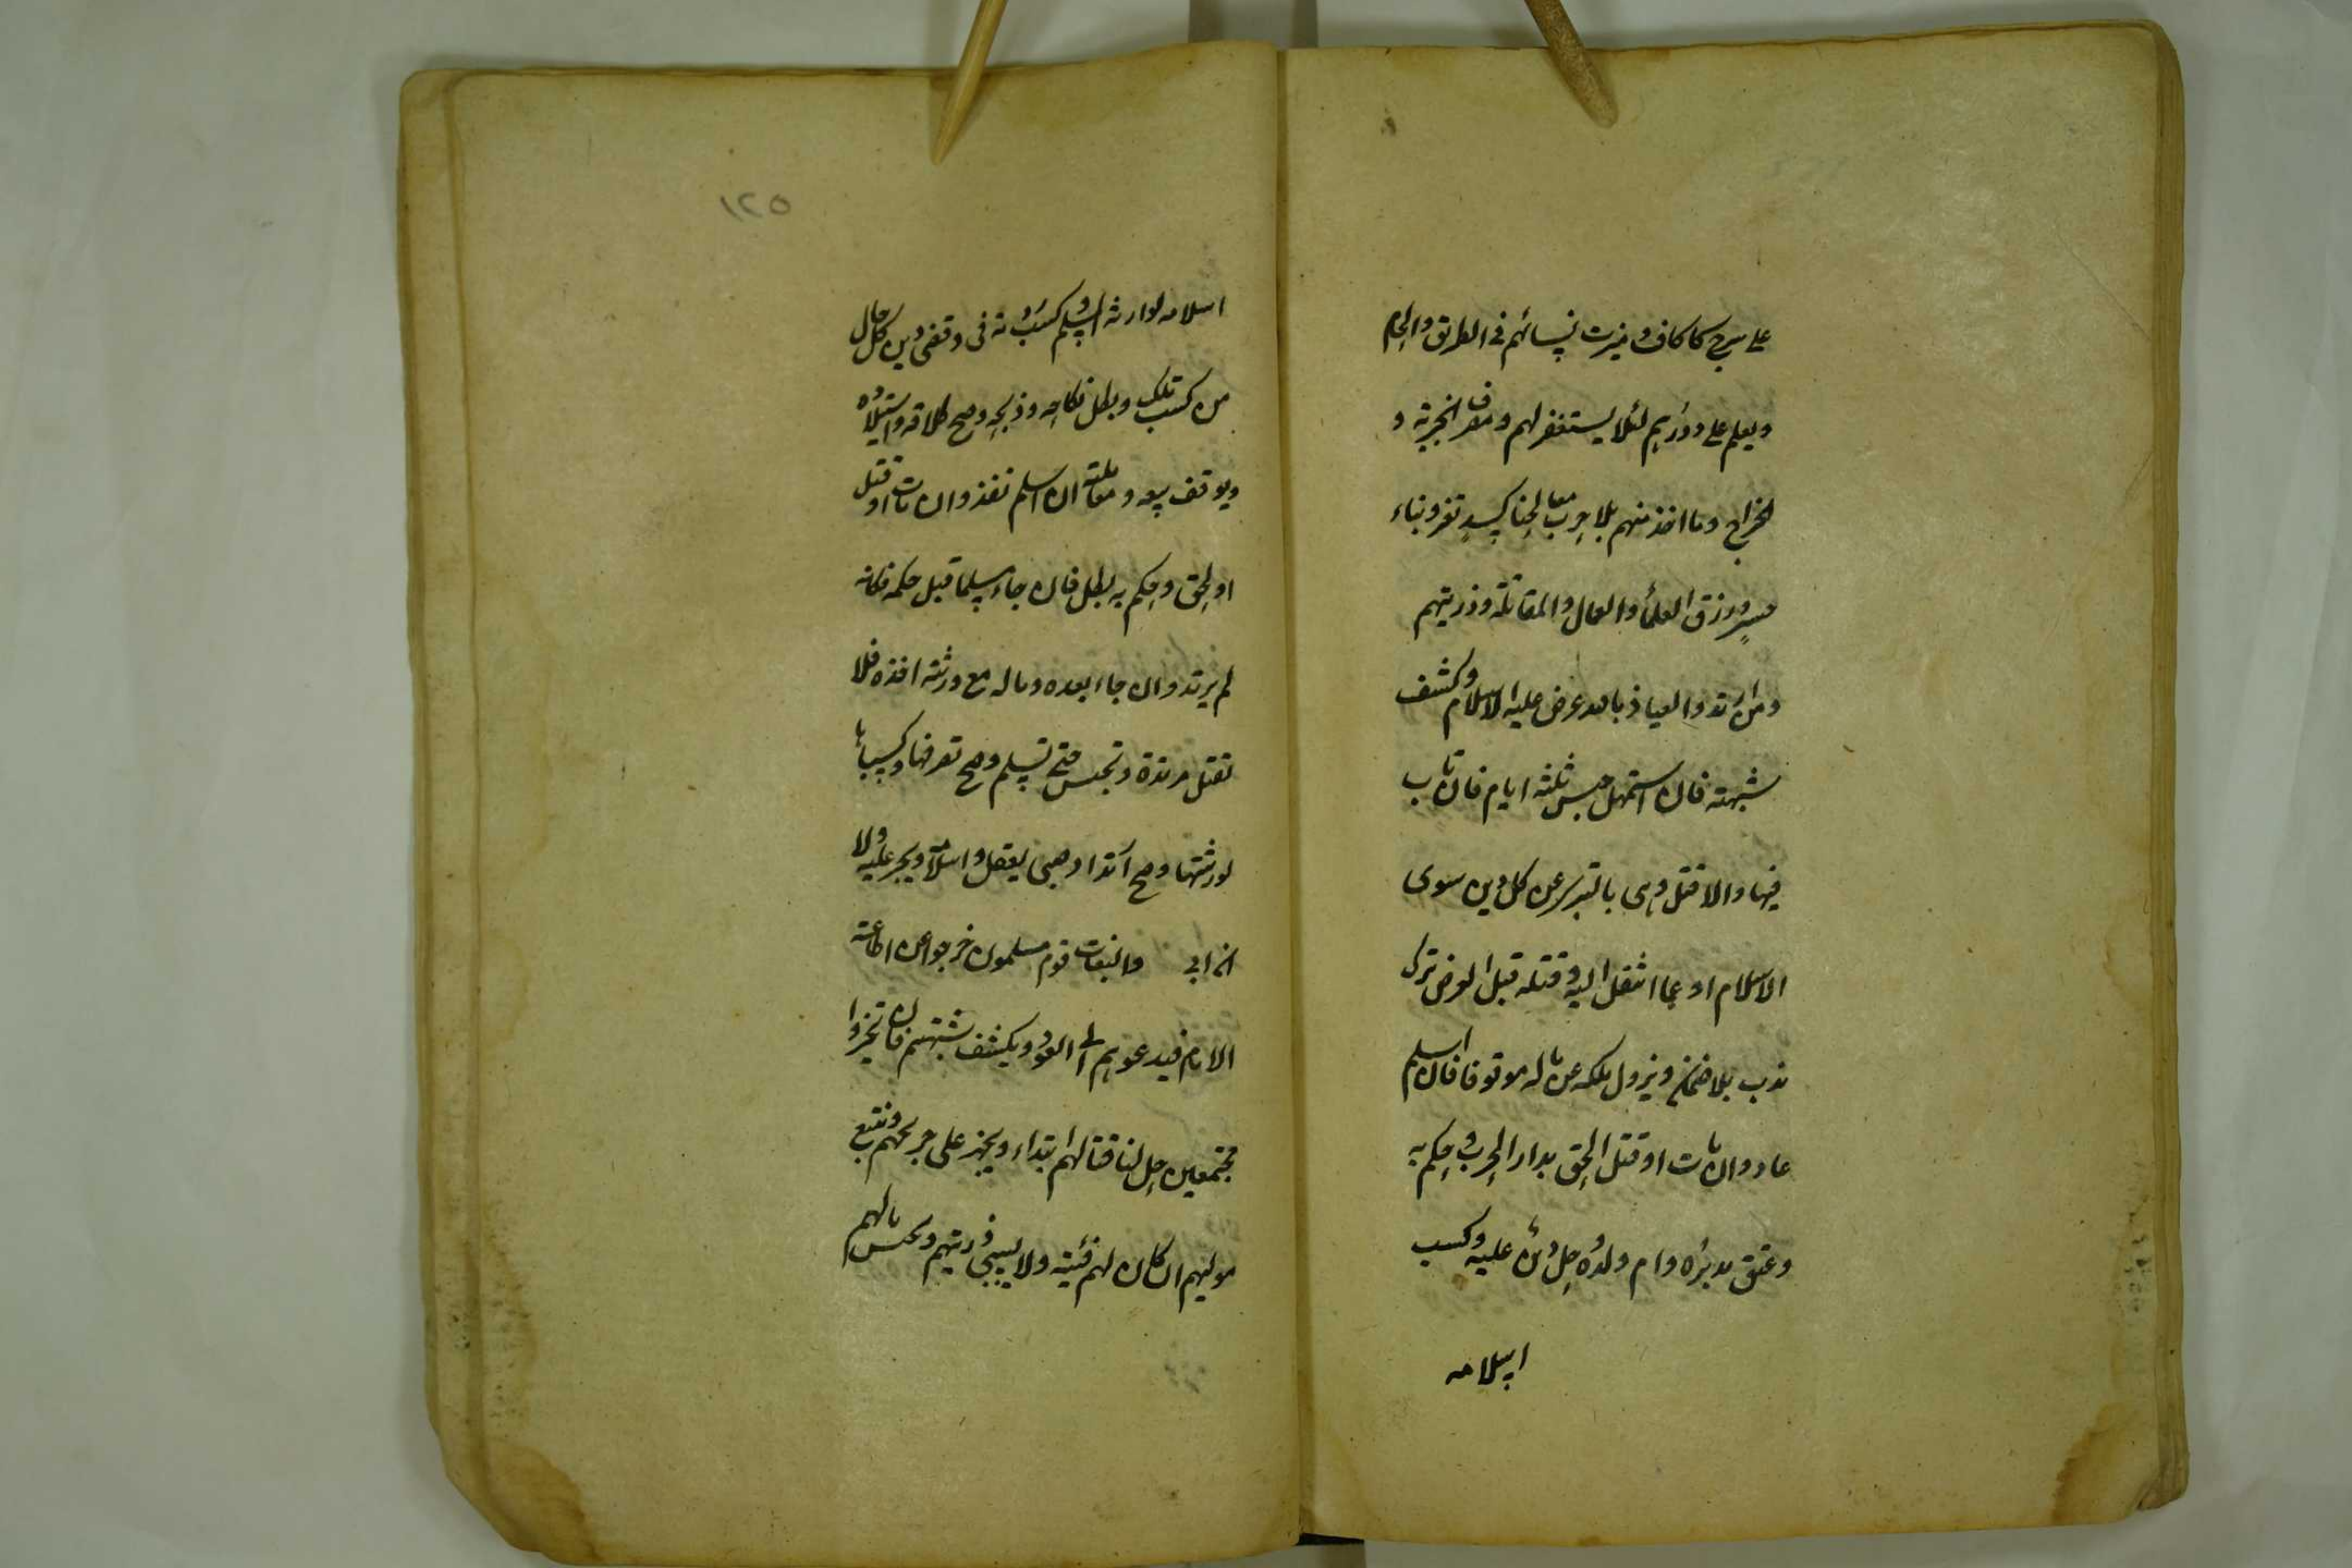 على سرج كاكاف وميزت نسائهم فى الطريق والحمام
ويعلم على دورهم لئلا يستغفر لهم ومصرف الجزية و
الخراج وما اخذ منهم بلا حرب مصالحنا كسد ثغر وبناء
جسر ورزق العلماء والعمال والمقاتلة وذريتهم
ومن ارتد والعياذ بالله عرض عليه الاسلام وكشف
شبهته فان استمهل حبس ثلثة ايام فان تاب
فيها والا قتل وهى بالتبرى عن كل دين سوى
الاسلام او عما انتقل اليه وقتله قبل العرض ترك
ندب بلا ضمان ويزول ملكه عن ماله موقوفا فان اسلم
عاد وان مات او قتل او لحق بدار الحرب وحكم به
وعتق مدبره وام ولده وحل دين عليه وكسب
اسلامه
١٢٥
اسلامه لوارثه المسلم وكسب ردته فى وقضى دين كل حال
من كسب تلك وبطل نكاحه وذبحه وصح طلاقه واستيلاده
ويوقف بيعه ومعاملته ان اسلم نفذ وان مات او قتل
او لحق وحكم به بطل فان جاء مسلما قبل حكمه فكانه
لم يرتد وان جاء بعده وماله مع ورثته اخذه فلا
تقتل مرتدة وتحبس حتى تسلم وصح تصرفها وكسباها
لورثتها وصح ارتداد صبى يعقل واسلامه ويجبر عليه ولا
ان ابى والبغات قوم مسلمون خرجوا عن اطاعة
الامام فيدعوهم الى العود ويكشف شبهتهم فان تحيزوا
مجتمعين حل لنا قتالهم ابتداء ويجهز على جريحهم ونتبع
موليهم ان كان لهم فئية ولا يسبى ذريتهم وتحبس مالهم